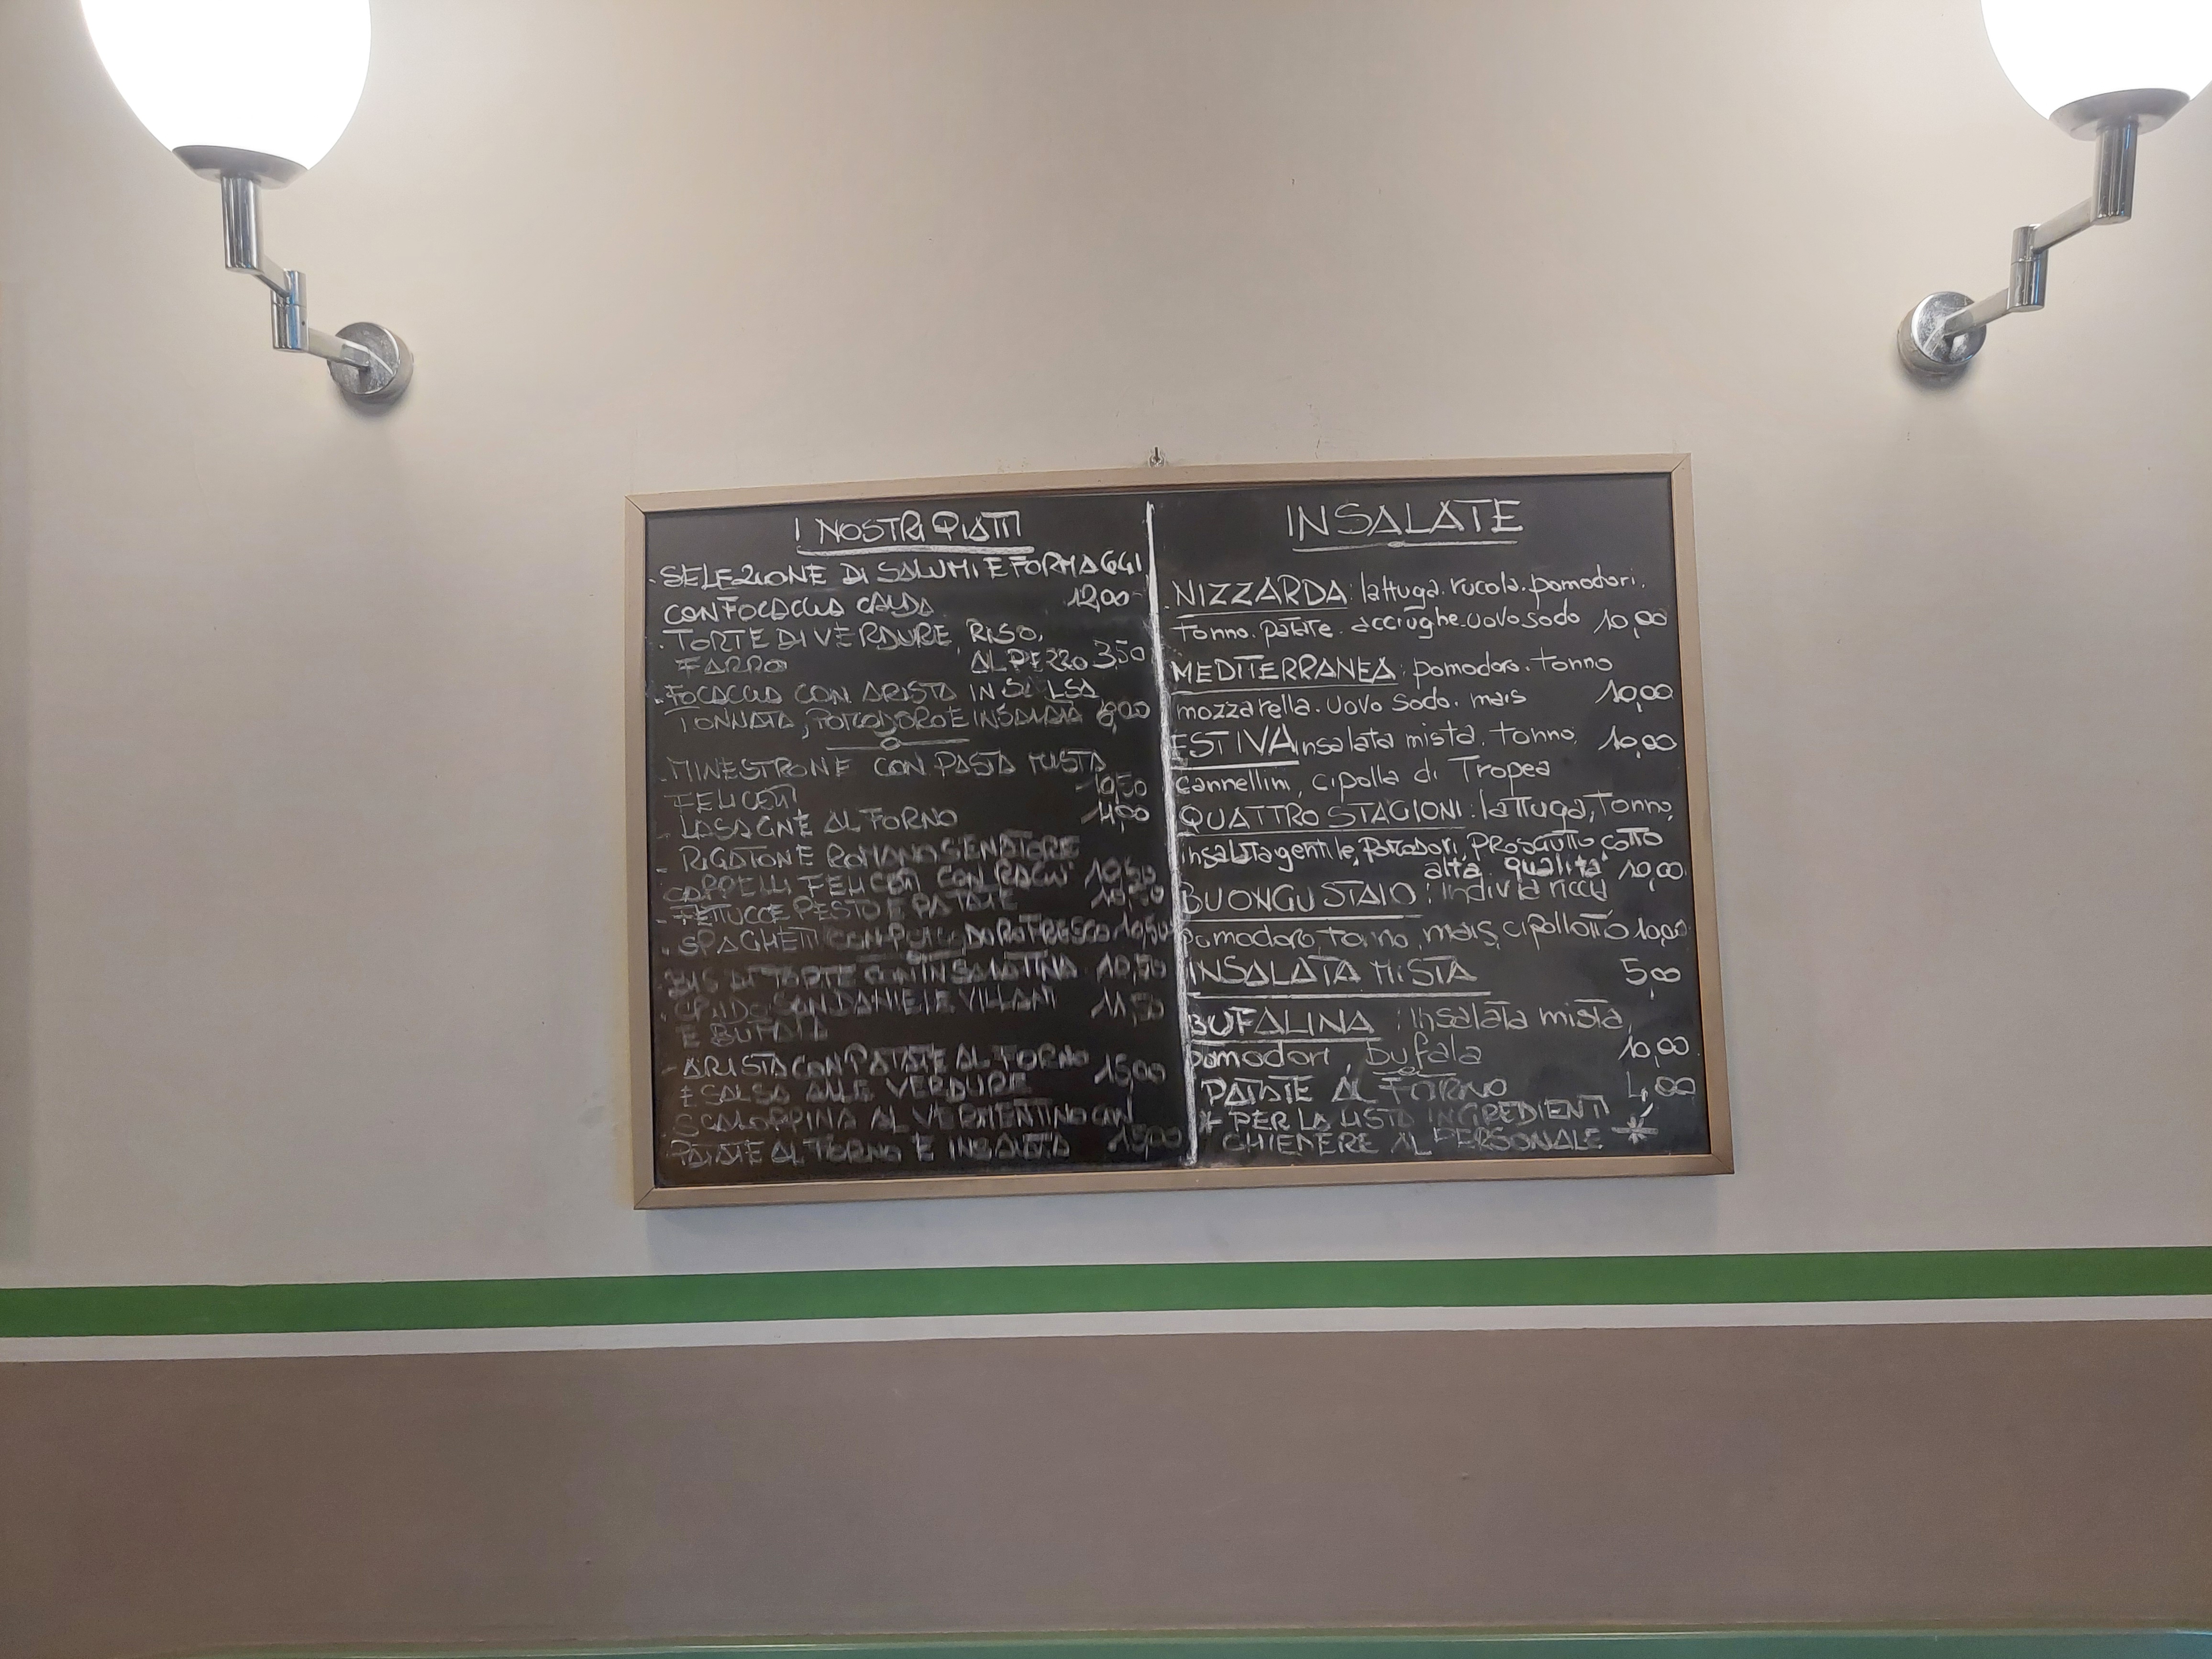 I NOSTRI PIATTI
- SELEZIONE DI SALUMI E FORMAGGI
CON FOCACCIA CALDA 12,00
- TORTE DI VERDURE, RISO,
FARRO AL PEZZO 3,50
- FOCACCIA CON ARISTA IN SALSA
TONNATA, POMODORO E INSALATA 8,00
- MINESTRONE CON PASTA MISTA
FELICETTI 10,50
- LASAGNE AL FORNO 11,00
- RIGATONE ROMANO SENATORE
CAPPELLI FELICETTI CON RAGU' 10,50
- FETTUCCE PESTO E PATATE 10,50
- SPAGHETTI CON POMODORO FRESCO 10,50
BIS DI TORTE CON INSALATINA 10,50
- CRUDO SAN DANIELE VILLANI 11,50
E BUFALA
- ARISTA CON PATATE AL FORNO
E SALSA ALLE VERDURE 15,00
SCALOPPINA AL VERMENTINO CON
PATATE AL FORNO E INSALATA 15,00
INSALATE
NIZZARDA: lattuga. rucola. pomodori.
tonno. patate. acciughe. uovo sodo 10,00
MEDITERRANEA: pomodoro. tonno
mozzarella. uovo sodo. mais 10,00
ESTIVA insalata mista. tonno, 10,00
cannellini, cipolla di Tropea
QUATTRO STAGIONI: lattuga, tonno,
insalata gentile, pomodori, prosciutto cotto
alta qualità 10,00
BUONGUSTAIO: indivia riccia
pomodoro, tonno, mais, cipollotto 10,00
INSALATA MISTA 5,00
BUFALINA: insalata mista,
pomodori, bufala 10,00
PATATE AL FORNO 4,00
* PER LA LISTA INGREDIENTI
CHIEDERE AL PERSONALE *